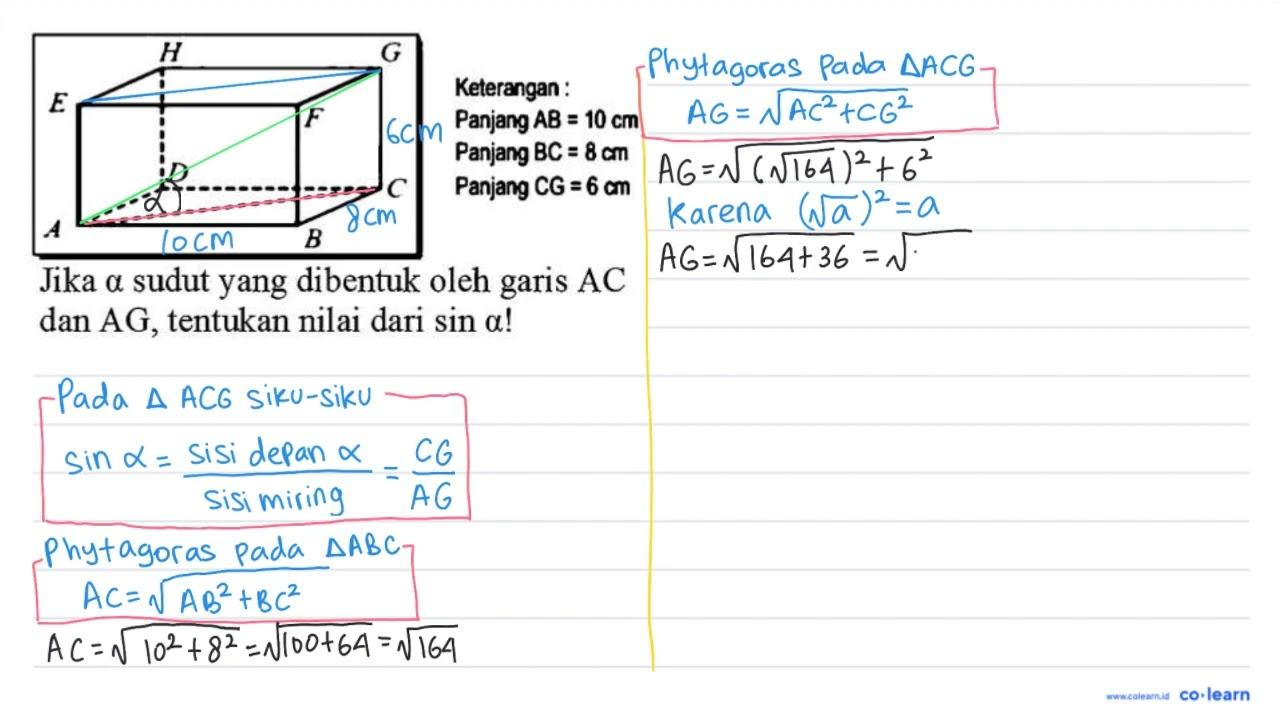 H G
E F
6cm
D
α C
A 8cm
10cm B
Keterangan :
Panjang AB = 10 cm
Panjang BC = 8 cm
Panjang CG = 6 cm
Jika α sudut yang dibentuk oleh garis AC
dan AG, tentukan nilai dari sin α!
Pada Δ ACG siku-siku
sin α = sisi depan α / sisi miring = CG / AG
Phytagoras pada ΔABC
AC = √(AB² + BC²)
AC = √(10² + 8²) = √(100+64) = √164
Phytagoras pada ΔACG
AG = √(AC² + CG²)
AG = √((√164)² + 6²)
Karena (√a)² = a
AG = √(164 + 36) = √
www.colearn.id co·learn